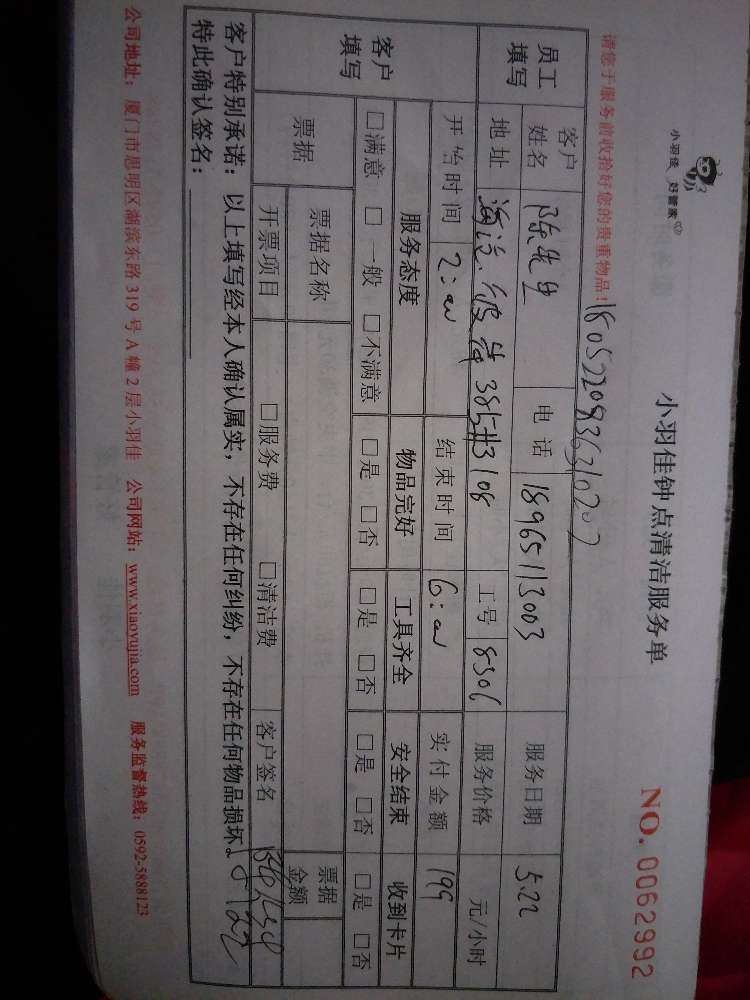 小羽佳 好管家
小羽佳钟点清洁服务单
NO. 0062992
请您于服务前收拾好您的贵重物品!
员工填写 客户姓名 陈先生 电话 18965113003 服务日期 5.22
地址 385#3108 工号 8306 服务价格 元/小时
开始时间 2:00 结束时间 6:00 实付金额 199
客户填写 服务态度 物品完好 工具齐全 安全结束 收到卡片
□满意 □一般 □不满意 □是 □否 □是 □否 □是 □否 □是 □否
票据 票据名称 票据金额
开票项目 □服务费 □清洁费 客户签名
客户特别承诺：以上填写经本人确认属实，不存在任何纠纷，不存在任何物品损坏。
特此确认签名：
公司地址：厦门市思明区湖滨东路 319 号 A 幢 2 层小羽佳 公司网站：www.xiaoyujia.com 服务监督热线：0592-5888123